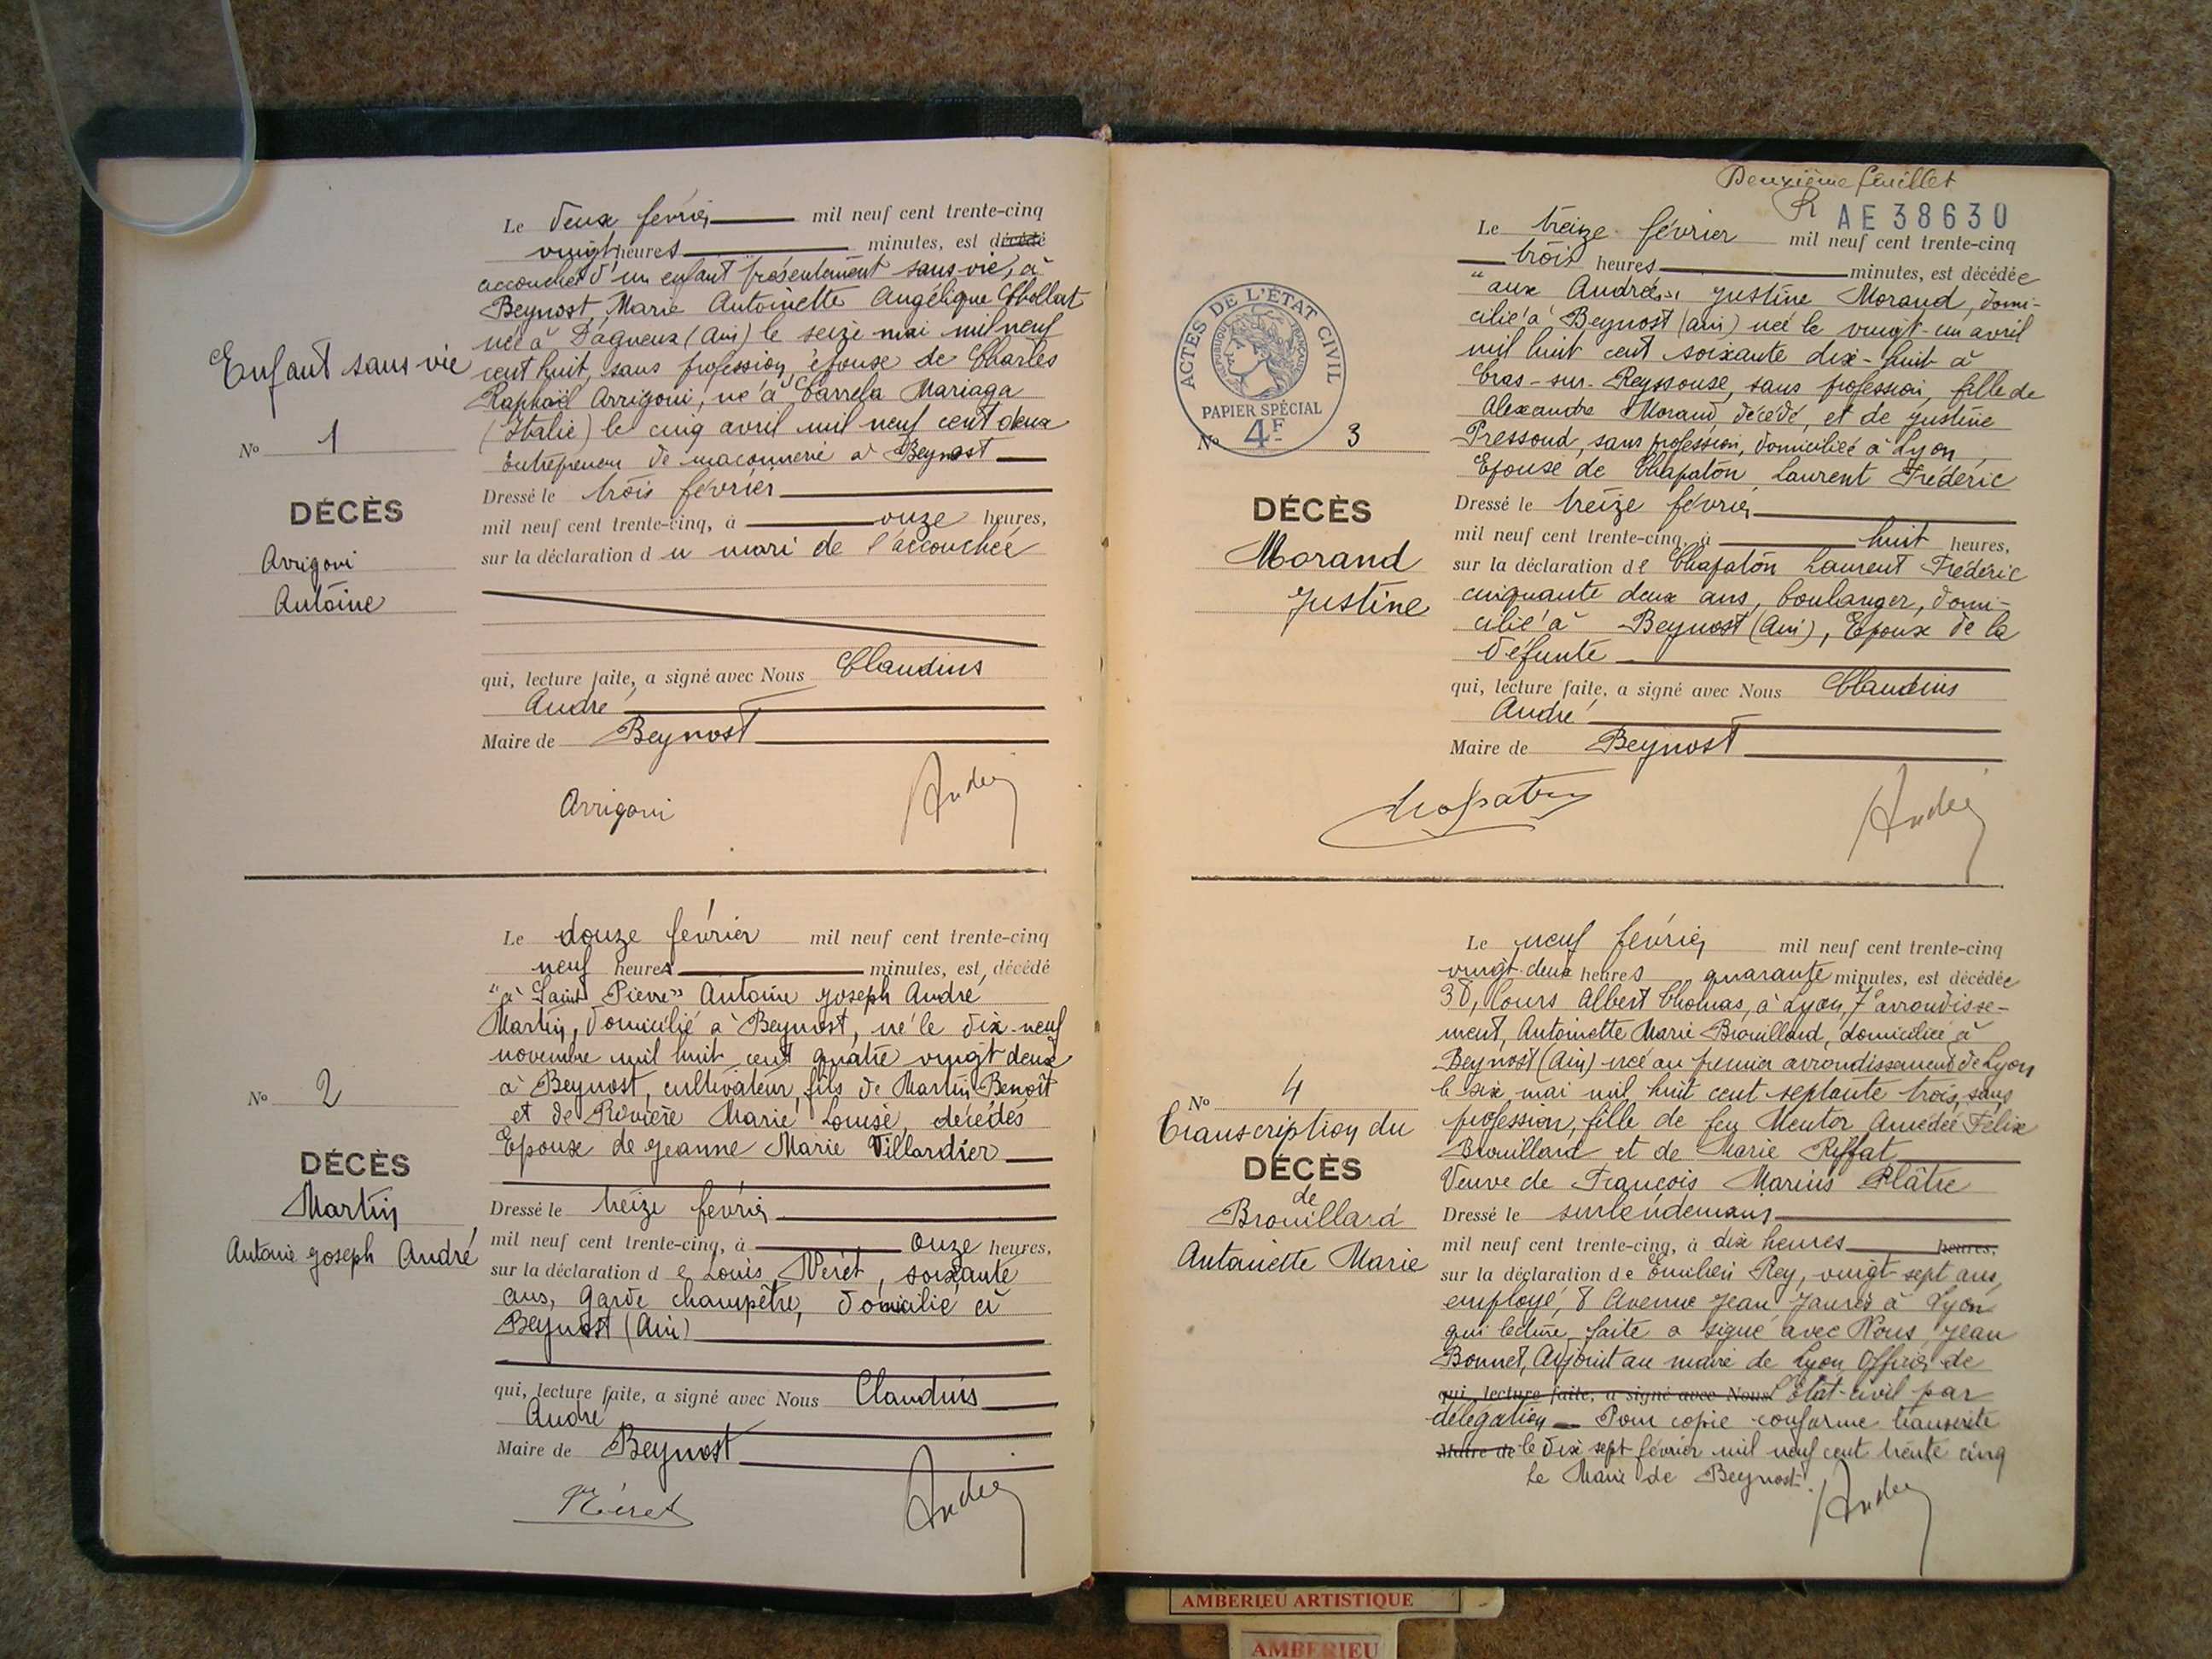 Le deux février mil neuf cent trente-cinq
vingt heures minutes, est décédé
accouchée d'un enfant présentement sans vie, à
Beynost, Marie Antoinette Angélique Chollat
née à Dagneux (Ain) le seize mai mil neuf
Enfant sans vie
cent huit, sans profession, épouse de Charles
Raphaël Arrigoni, né à Mariaga
(Italie) le cinq avril mil neuf cent deux
No 1
Entrepreneur de maçonnerie à Beynost
DÉCÈS
Arrigoni
Antoine
Dressé le trois février
mil neuf cent trente-cinq, à onze heures,
sur la déclaration du mari de l'accouchée
qui, lecture faite, a signé avec Nous Claudius
André
Maire de Beynost
Arrigoni
André
Le douze février mil neuf cent trente-cinq
neuf heures minutes, est décédé
"à Saint Pierre" Antoine Joseph André
Martin, domicilié à Beynost, né le dix-neuf
novembre mil huit cent quatre vingt deux
à Beynost, cultivateur, fils de Martin Benoît
et de Rivière Marie Louise, décédés
Epoux de Jeanne Marie Villardier
No 2
DÉCÈS
Martin
Antoine Joseph André
Dressé le treize février
mil neuf cent trente-cinq, à onze heures,
sur la déclaration de Louis Néret, soixante
ans, Garde champêtre, domicilié à
Beynost (Ain)
qui, lecture faite, a signé avec Nous Claudius
André
Maire de Beynost
Néret
André
Deuxième feuillet
R AE 38630
Le treize février mil neuf cent trente-cinq
trois heures minutes, est décédée
"aux Andrés" Justine Morand, domi-
cilié à Beynost (Ain) née le vingt-un avril
mil huit cent soixante dix-huit à
Cras-sur-Reyssouse, sans profession, fille de
Alexandre Morand, décédé, et de Justine
Pressoud, sans profession, domiciliée à Lyon,
Epouse de Chapaton Laurent Frédéric
ACTES DE L'ÉTAT CIVIL
RÉPUBLIQUE FRANÇAISE
PAPIER SPÉCIAL
4F
No 3
DÉCÈS
Morand
Justine
Dressé le treize février
mil neuf cent trente-cinq, à huit heures,
sur la déclaration de Chapaton Laurent Frédéric
cinquante deux ans, boulanger, domi-
cilié à Beynost (Ain), Epoux de la
défunte
qui, lecture faite, a signé avec Nous Claudius
André
Maire de Beynost
Chapaton
André
Le neuf février mil neuf cent trente-cinq
vingt-deux heures quarante minutes, est décédée
38, Cours Albert Thomas, à Lyon, 7e arrondisse-
ment, Antoinette Marie Brouillard, domiciliée à
Beynost (Ain) née au premier arrondissement de Lyon
le six mai mil huit cent septante trois, sans
profession, fille de feu Mentor Amédée Félix
Brouillard et de Marie Riffat
Veuve de François Marius Plâtre
No 4
Transcription du
DÉCÈS
de
Brouillard
Antoinette Marie
Dressé le surlendemain
mil neuf cent trente-cinq, à dix heures heures,
sur la déclaration de Emilien Rey, vingt-sept ans,
employé, 8 Avenue Jean Jaurès à Lyon
qui lecture faite a signé avec Nous, Jean
Bonnet, Adjoint au maire de Lyon Officier de
qui, lecture faite, a signé avec Nous l'état-civil par
délégation — Pour copie conforme transcrite
Maire de le dix sept février mil neuf cent trente cinq
Le Maire de Beynost.
André
AMBERIEU ARTISTIQUE
AMBERIEU